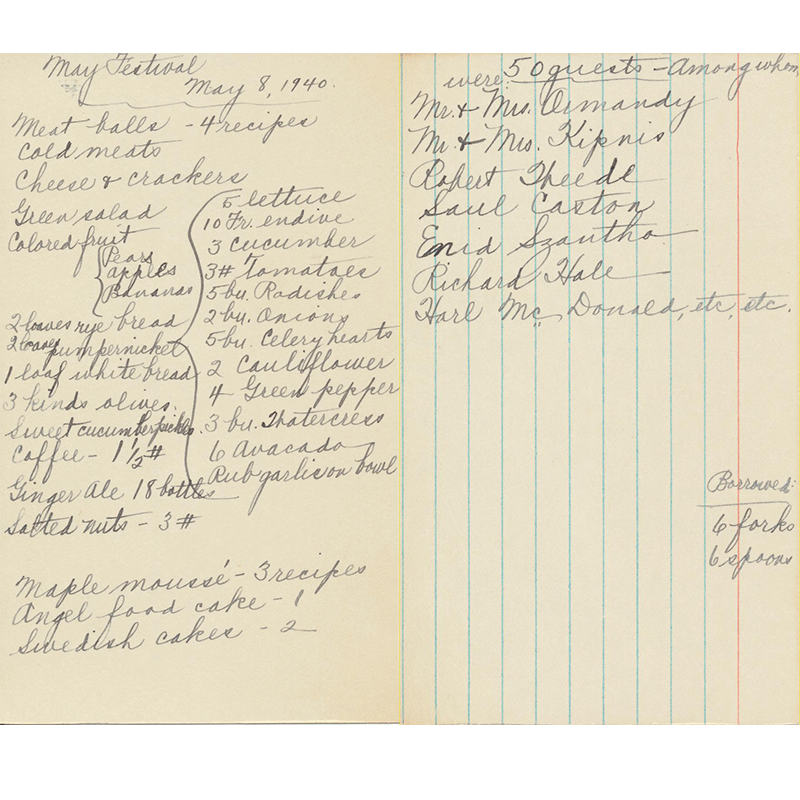 May Festival
May 8, 1940.
Meat balls - 4 recipes
Cold meats
Cheese & crackers
Green salad
Colored fruit
Pears
apples
Bananas
2 loaves rye bread
2 loaves pumpernickel
1 loaf white bread
3 kinds olives.
Sweet cucumber pickles.
Coffee - 1 1/2 #
Ginger Ale 18 bottles
Salted nuts - 3 #
5 lettuce
10 Fr. endive
3 cucumber
3# Tomatoes
5 bu. Radishes
2 bu. Onions
5 bu. Celery hearts
2 Cauliflower
4 Green pepper
3 bu. Watercress
6 Avacado
Rub garlic on bowl
Maple moussé - 3 recipes
Angel food cake - 1
Swedish cakes - 2
were 50 guests - Among whom
Mr. & Mrs. Ormandy
Mr. & Mrs. Kipnis
Robert Theede
Saul Caston
Enid Szantho
Richard Hale
Harl Mc Donald, etc, etc.
Borrowed:
6 forks
6 spoons